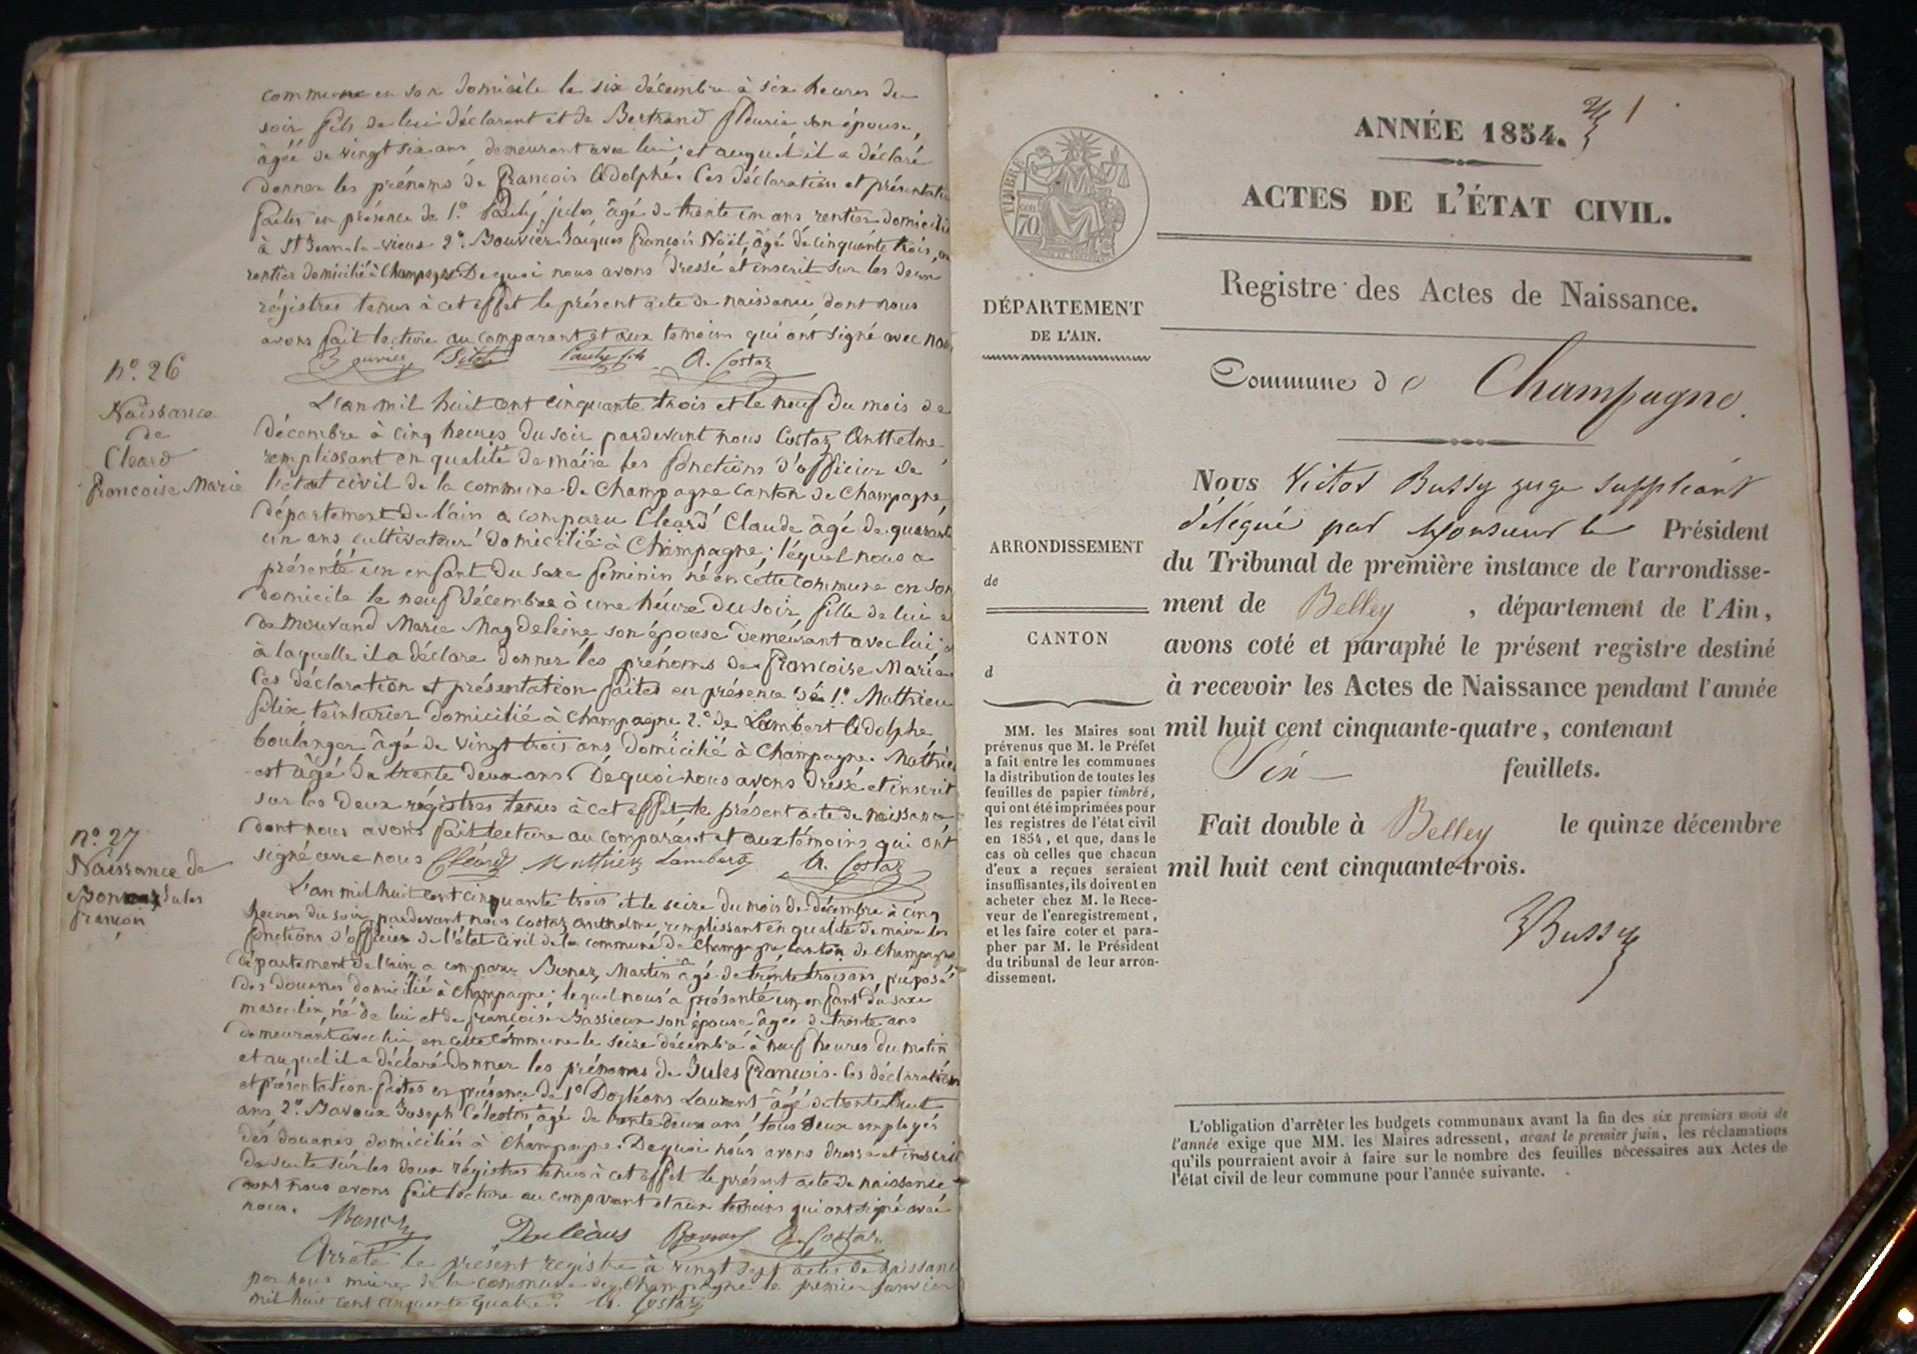 commune en son domicile le six décembre à six heures du
soir fils de lui déclarant et de Bertrand fleurie son épouse,
âgée de vingt six ans, demeurant avec lui; et auquel il a déclaré
donner les prénoms de François Adolphe. Ces déclaration et présentation
faites en présence de 1º. Pauly jules, âgé de trente un ans rentier domicilié
à St Jean-le-vieux 2º. Bouvier Jacques françois Noël, âgé de cinquante trois,
rentier domicilié à Champagne De quoi nous avons dressé et inscrit sur les deux
régistres tenus à cet effet le présent acte de naissance dont nous
avons fait lecture au comparant et aux témoins qui ont signé avec nous
Bouvier Pauly fils A. Costaz
nº. 26
Naissance
de
Cleard
francoise Marie
L'an mil huit cent cinquante trois et le neuf du mois de
décembre à cinq heures du soir pardevant nous Costaz Anthelme
remplissant en qualité de maire les fonctions d'officier de
l'état civil de la commune de Champagne canton de Champagne,
département de l'ain a comparu Cleard Claude âgé de quarante
un ans cultivateur domicilié à Champagne; lequel nous a
présenté un enfant du sexe feminin né en cette commune en son
domicile le neuf décembre à une heure du soir fille de lui et
de Mouvand Marie Magdeleine son épouse demeurant avec lui
à laquelle il a déclaré donner les prénoms de françoise Marie
Ces déclaration et présentation faites en présence de 1º. Mathieu
félix teinturier domicilié à Champagne 2º. de Lambert Adolphe
boulanger âgé de vingt trois ans domicilié à Champagne. Mathieu
est âgé de trente deux ans De quoi nous avons dressé et inscrit
sur les deux régistres tenus à cet effet le présent acte de naissance
dont nous avons fait lecture au comparant et aux témoins qui ont
signé avec nous Cléard Mathieu Lambert A. Costaz
nº. 27
Naissance de
Bonaz Jules
françois
L'an mil huit cent cinquante trois et le seize du mois de décembre à cinq
heures du soir, pardevant nous Costaz Anthelme, remplissant en qualité de maire les
fonctions d'officier de l'état civil de la commune de Champagne canton de Champagne
département de l'ain a comparu Bonaz Martin âgé de trente trois ans, préposé
des douanes domicilié à Champagne; lequel nous a présenté un enfant du sexe
masculin, né de lui et de françoise Bassieux son épouse âgée de trente ans
demeurant avec lui en cette commune le seize décembre à neuf heures du matin
et auquel il a déclaré donner les prénoms de Jules françois. Ces déclaration
et présentation faites en présence de 1º Dorléans Laurent âgé de trente huit
ans, 2º. Bavoux Joseph Célestin âgé de trente deux ans tous deux employés
des douanes, domiciliés à Champagne. De quoi nous avons dressé et inscrit
de suite sur les deux régistres tenus à cet effet le présent acte de naissance
dont nous avons fait lecture au comparant et aux témoins qui ont signé avec
nous. Bonaz Dorléans Bavoux A. Costaz
Arrêté le présent registre à vingt sept actes de naissance
par nous maire de la commune de Champagne le premier janvier
mil huit cent cinquante quatre. A. Costaz
1
ANNÉE 1854.
ACTES DE L'ÉTAT CIVIL.
Registre des Actes de Naissance.
TIMBRE
70
DÉPARTEMENT
DE L'AIN.
Commune de Champagne.
ARRONDISSEMENT
de
CANTON
d
MM. les Maires sont
prévenus que M. le Préfet
a fait entre les communes
la distribution de toutes les
feuilles de papier timbré,
qui ont été imprimées pour
les registres de l'état civil
en 1854, et que, dans le
cas où celles que chacun
d'eux a reçues seraient
insuffisantes, ils doivent en
acheter chez M. le Rece-
veur de l'enregistrement,
et les faire coter et para-
pher par M. le Président
du tribunal de leur arron-
dissement.
Nous Victor Bussy juge suppléant
délégué par Monsieur le Président
du Tribunal de première instance de l'arrondisse-
ment de Belley, département de l'Ain,
avons coté et paraphé le présent registre destiné
à recevoir les Actes de Naissance pendant l'année
mil huit cent cinquante-quatre, contenant
Six feuillets.
Fait double à Belley le quinze décembre
mil huit cent cinquante-trois.
VBussy
L'obligation d'arrêter les budgets communaux avant la fin des six premiers mois de
l'année exige que MM. les Maires adressent, avant le premier juin, les réclamations
qu'ils pourraient avoir à faire sur le nombre des feuilles nécessaires aux Actes de
l'état civil de leur commune pour l'année suivante.